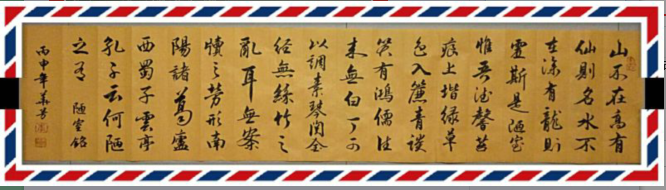 山不在高有
仙則名水不
在深有龍則
靈斯是陋室
惟吾德馨苔
痕上堦緑草
色入簾青談
笑有鴻儒往
来無白丁可
以調素琴閱金
经無絲竹之
亂耳無案
牘之劳形南
陽諸葛廬
西蜀子雲亭
孔子云何陋
之有 陋室銘
丙申年